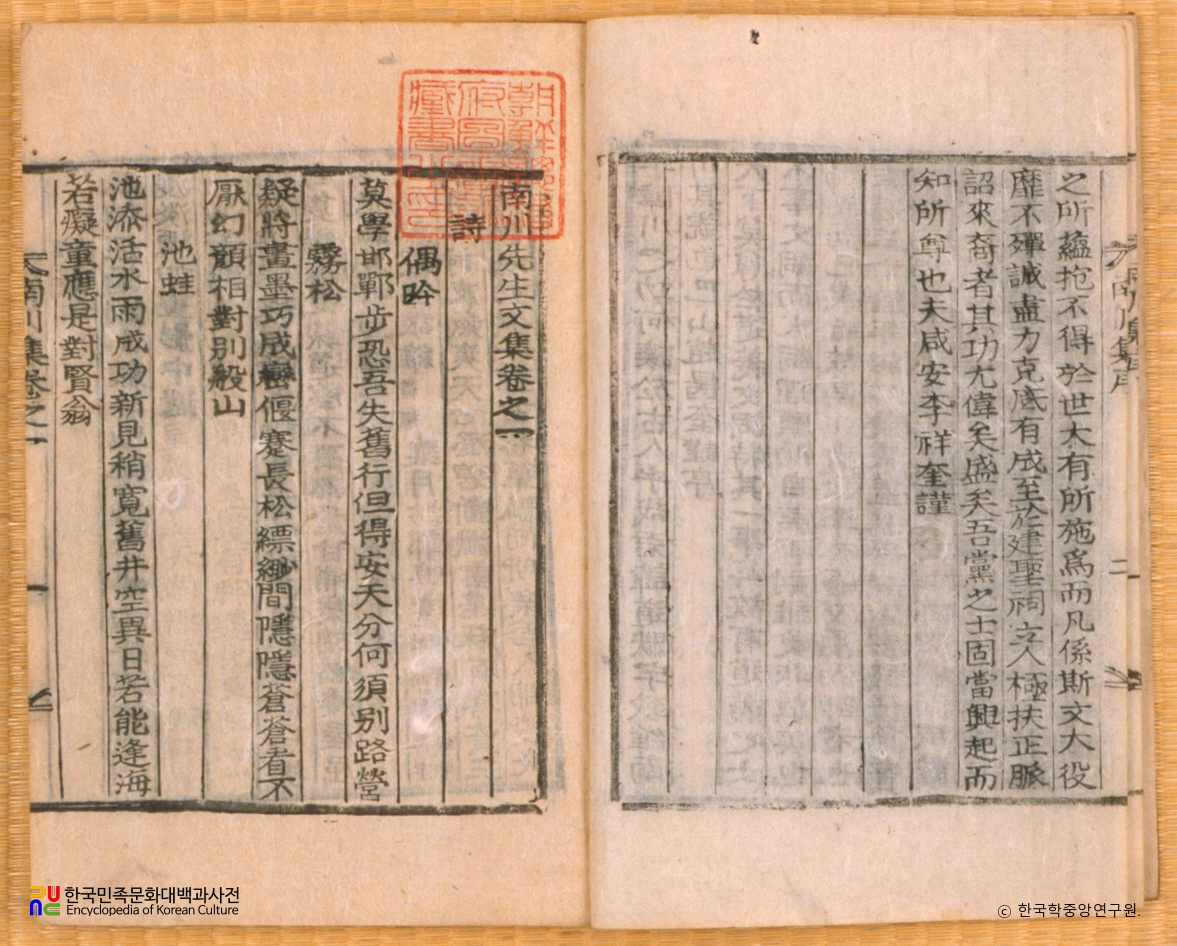 之所蘊抱不得於世大有所施爲而凡係斯文大役
靡不殫誠盡力克底有成至於建聖祠立人極扶正脈
詔來裔者其功尤偉矣盛矣吾黨之士固當興起而
知所尊也夫咸安李祥奎謹
二
南川先生文集卷之一
詩
偶吟
莫學邯鄲步恐吾失舊行但得安天分何須別路營
霧松
疑將畫墨巧成巒偃蹇長松縹緲間隱隱蒼蒼看不
厭幻顏相對別般山
池蛙
池添活水雨成功新見稍寬舊井空異日若能逢海
若癡童應是對賢翁
南川集卷之一
한국민족문화대백과사전
Encyclopedia of Korean Culture
ⓒ 한국학중앙연구원.